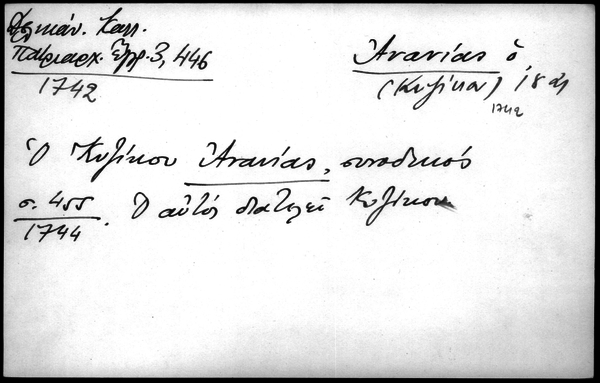 Δελικάν. Καλλ.
Πατριαρχ. Ἔγγρ. 3, 446
1742
Ἀνανίας ὁ
(Κυζίκου) 18
1742
Ὁ Κυζίκου Ἀνανίας, συνοδικός
σ. 455
1744
. Ὁ αὐτός διατελεῖ Κυζίκου